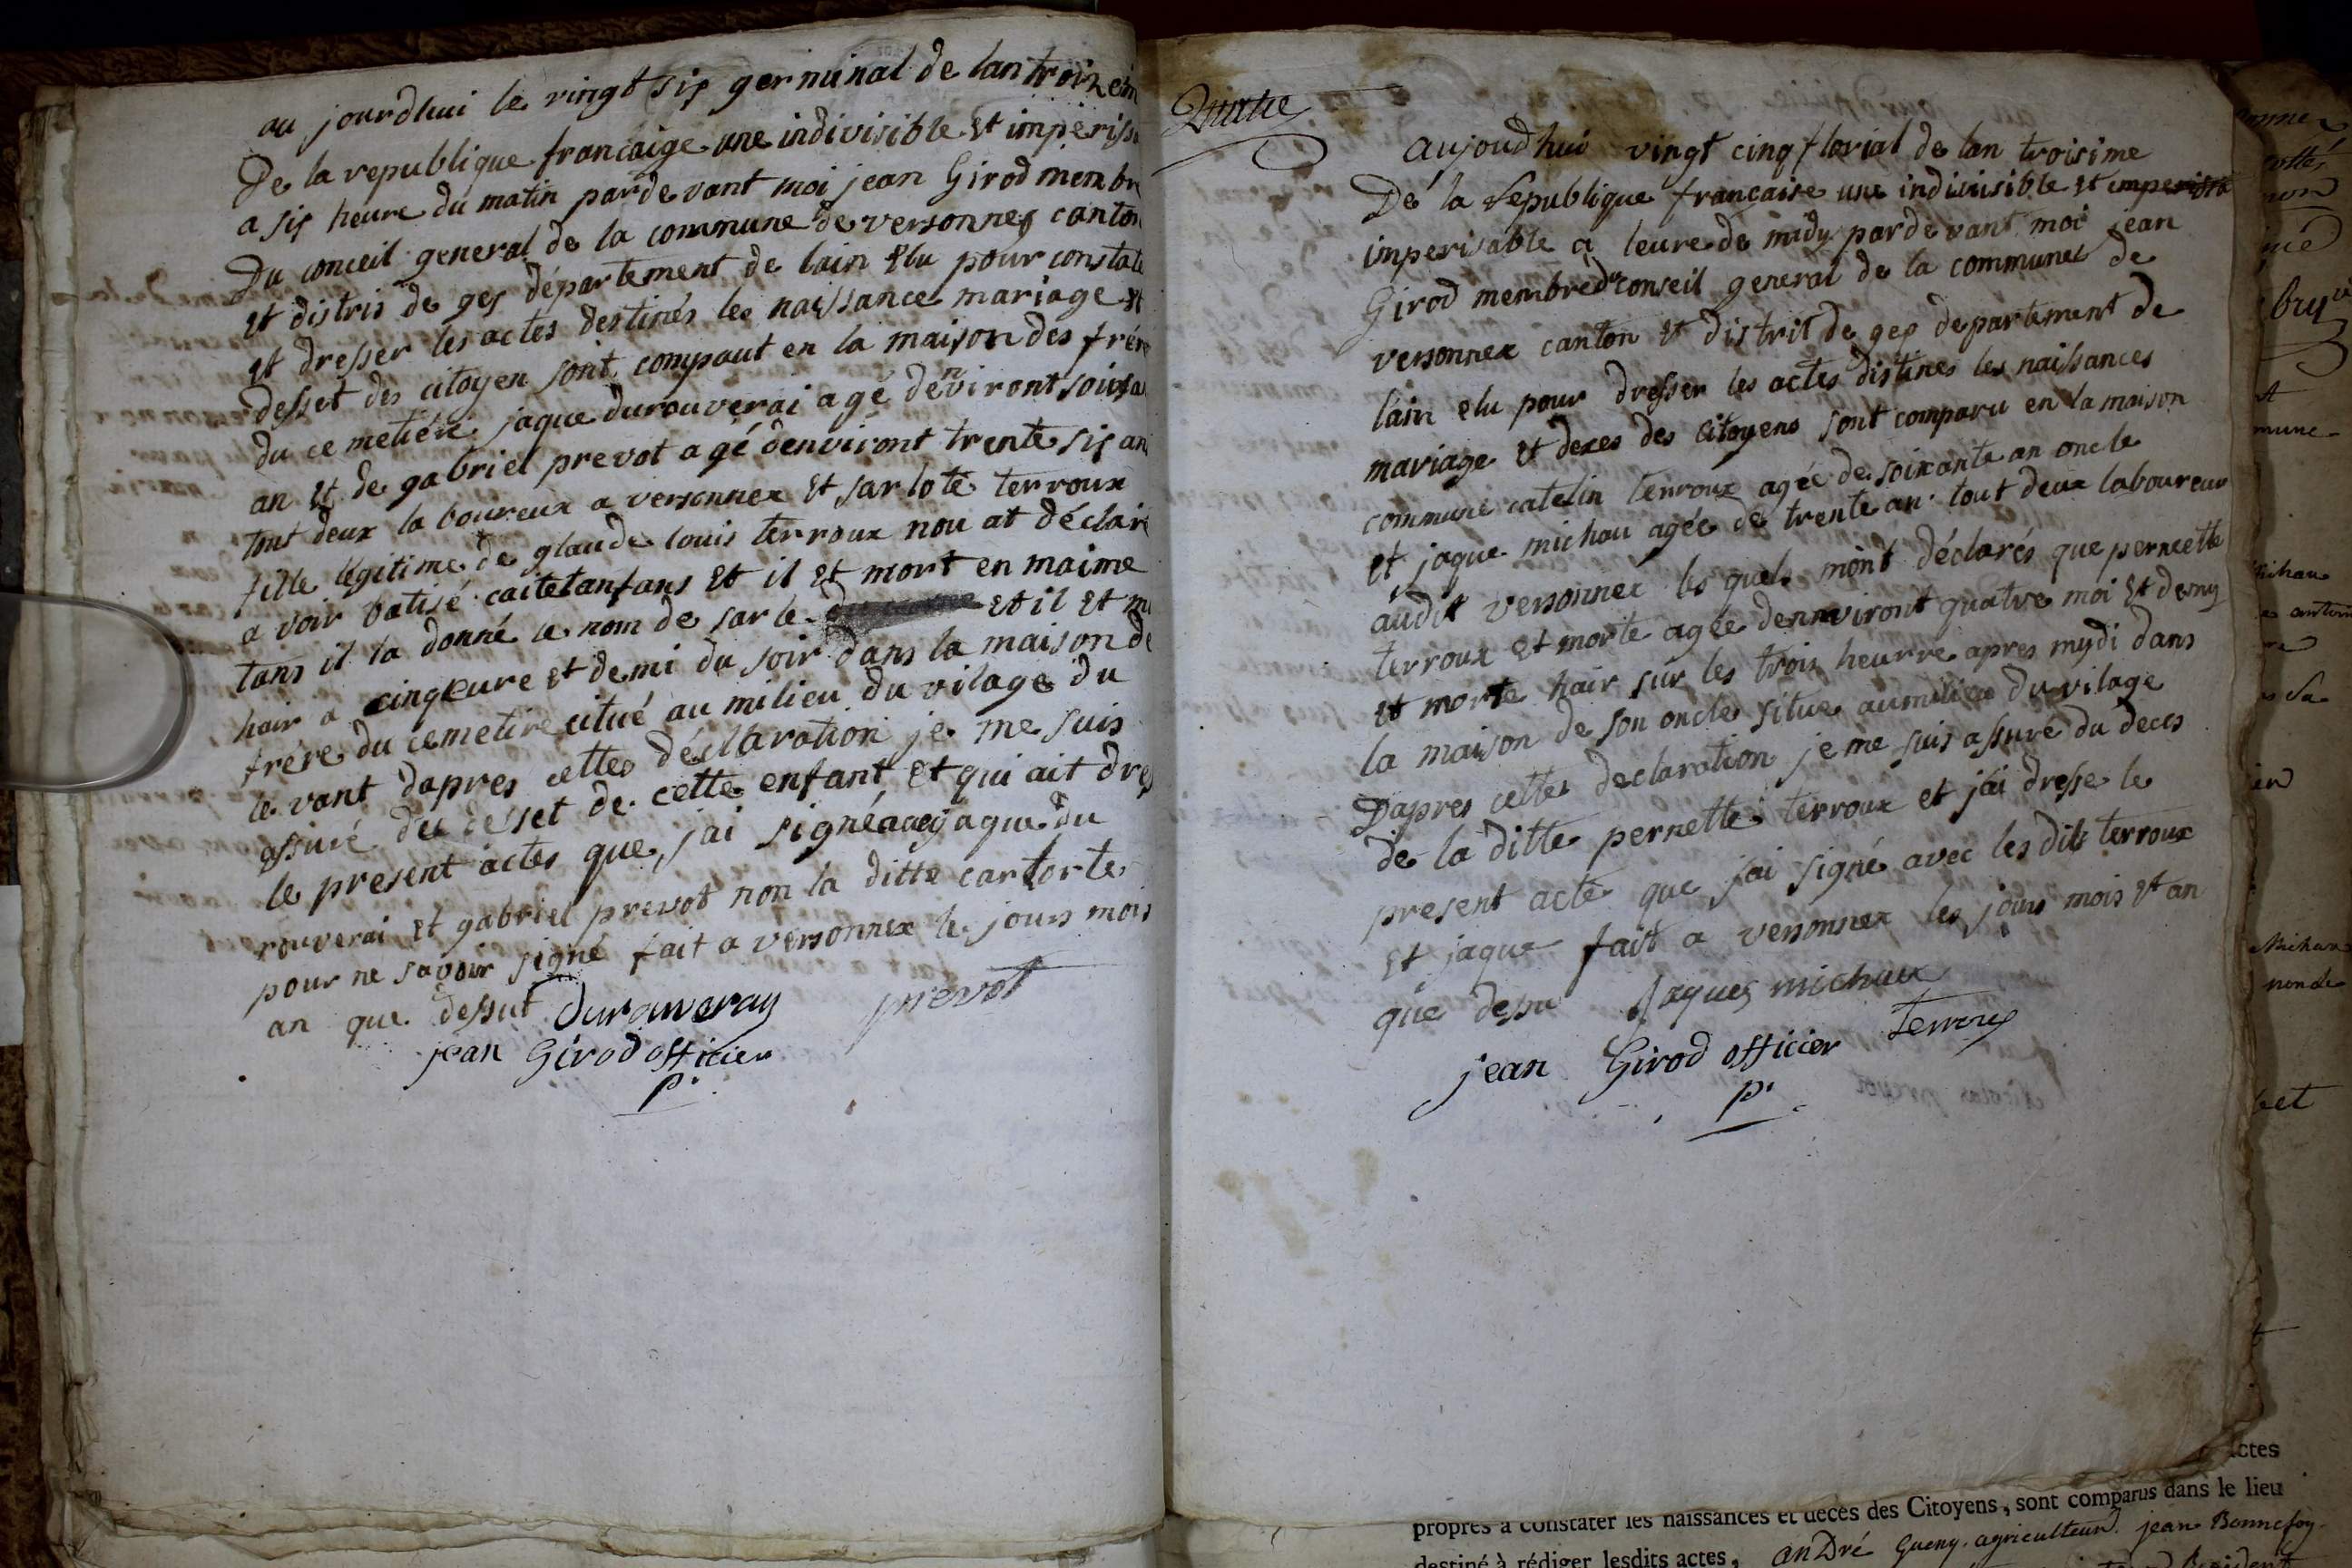 au jourdhui le vingt sis germinal de lan troiziem
De la republique francaige une indivisible Et imperiss
a sis heure du matin parde vant moi jean Girod membre
Du conceil general de la commune de versonnex canton
Et distris de ges département de lain Elu pour constate
Et dresser les actes destinés les naissance mariage Et
desset des citoyen sont compaut en la maison des frér
du ce metiére jaque durouverai agé denviront soixsa
an Et de gabriel prevot agé denviront trente sis an
tout deux la boureux a versonnex Et sarlote terroux
fille légitime de glaude louis terroux nou at déclaré
a voir batisé caitetanfans Et il Et mort en maime
tans il la donné le nom de sarle Et il Et m
hair a cinqeure Et demi du soir dans la maison de
frére du cemetire citué au milieu du vilage du
le vant dapres cettes déclaration je me suis
assuré du desset de cette enfant Et qui ait dres
le present actes que jai signé avec jaque du
rouverai Et gabriel prevot non la ditte carlorte
pour ne savoir signé fait a versonnex le jours mois
an que dessut Durouveray prevot
jean Girod officier
p.
aujoud hui vingt cinq florial de lan troisime
De la Republique francaise une indivisible Et
imperisable a leure de midy parde vant moi jean
Girod membre du conseil general de la communes de
versonnex canton Et distrit de ges departement de
lain elu pour dresser les actes distines les naissances
mariage Et deces des Citoyens sont comparu en la maison
commune catelin terroux agée de soixante an oncle
Et jaque michau agée de trente an tout deux laboureur
audit versonnex les quels mont déclarés que pernette
terroux Et morte agée dennviront quatre moi Et demy
Et morte hair sur les trois heurre apres mydi dans
la maison de son oncles situe aumilieu du vilage
Dapres cettes declaration je me suis assuré du deces
de la ditte pernette terroux et jai dresse le
present acte que jai signé avec les dit terroux
Et jaque fait a versonnex les jours mois Et an
que dessu Jaques michaux
jean Girod officier terroux
p.
ctes
propres à constater les naissances et décès des Citoyens, sont comparus dans le lieu
destiné à rédiger lesdits actes, anDré Gueny agriculteur jean Bonnefoy